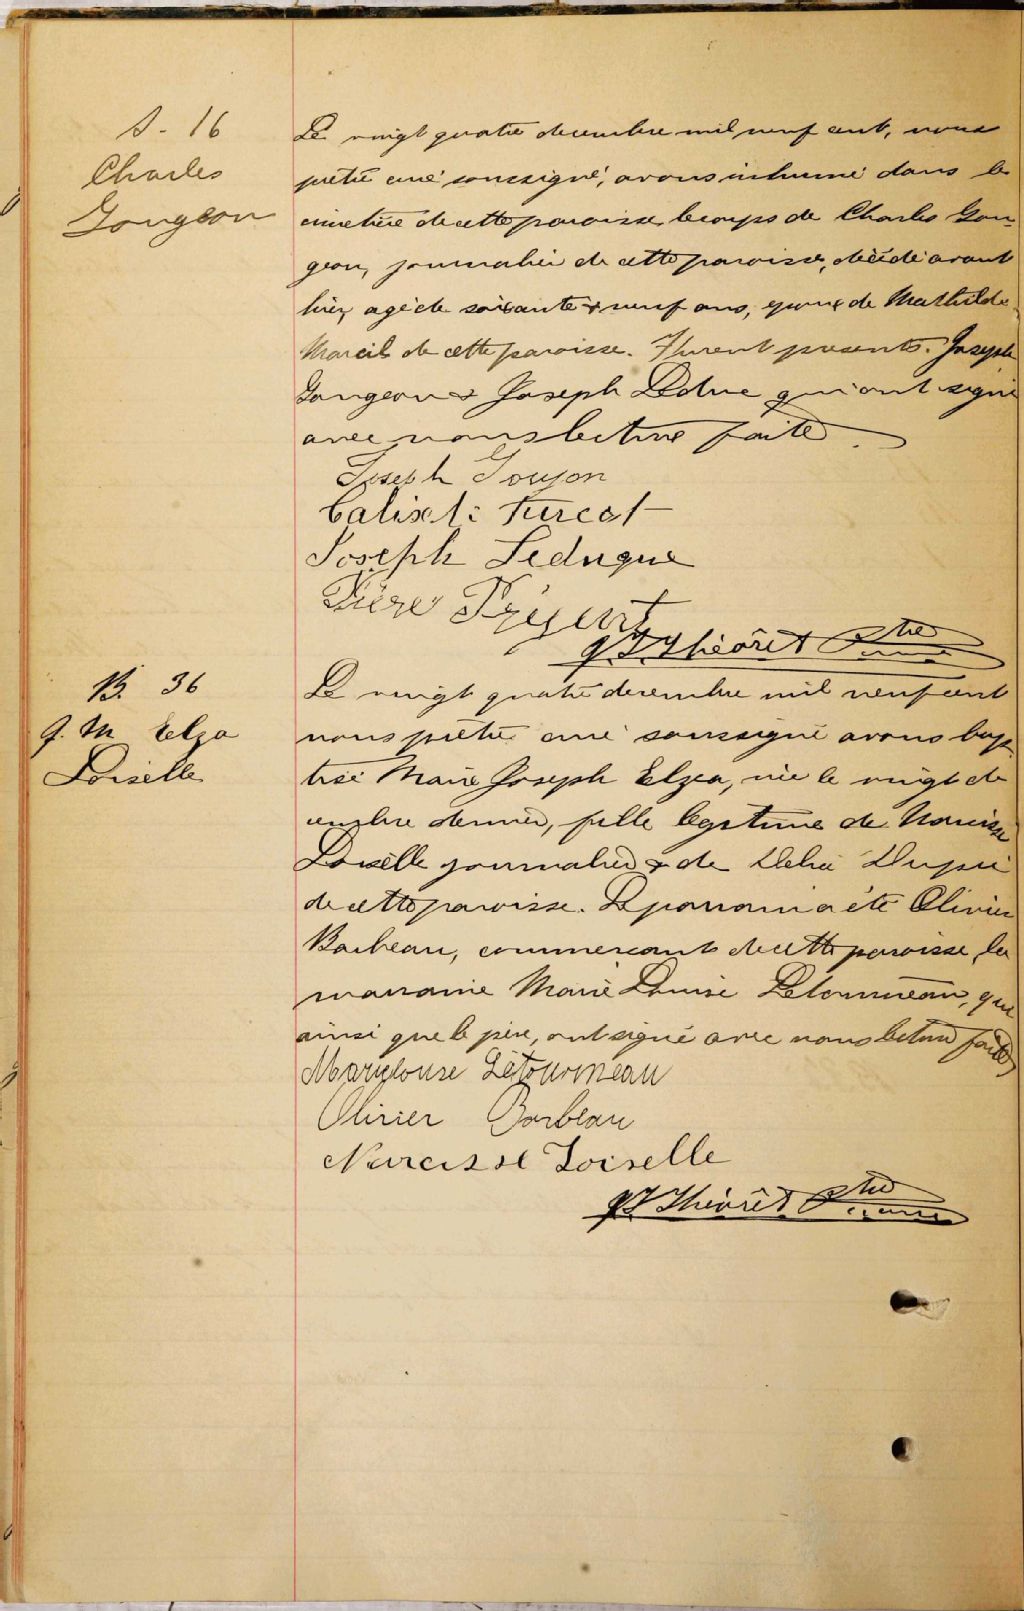 S. 16
Charles
Gougeon
Le vingt quatre decembre mil neuf cent, nous
prêtre curé soussigné, avons inhumé dans le
cimetière de cette paroisse le corps de Charles Gou-
geon, journalier de cette paroisse, décédé avant
hier, agé de soixante & neuf ans, epoux de Mathilde
Marcil de cette paroisse. Furent presents. Joseph
Gougeon & Joseph Leduc qui ont signé
avec nous lecture faite.
Joseph Goujon
Calixte Turcot
Joseph Leduque
Pière Prégent
J Théorêt Ptre curé
B. 36
J. M Elza
Loiselle
Le vingt quatre decembre mil neuf cent
nous prêtre curé soussigné avons bap
tisé Marie Joseph Elzea, née le vingt de
cembre dernier, fille legitime de Narcisse
Loiselle journalier & de Delia Dupré
de cette paroisse. Le parrain a été Olivier
Barbeau, commercant de cette paroisse, la
marraine Marie Louise Letourneau, qui
ainsi que le père, ont signé avec nous lecture faite
Marylouse Létourneau
Olivier Barbeau
Narcisse Loiselle
J Théorêt Ptre curé